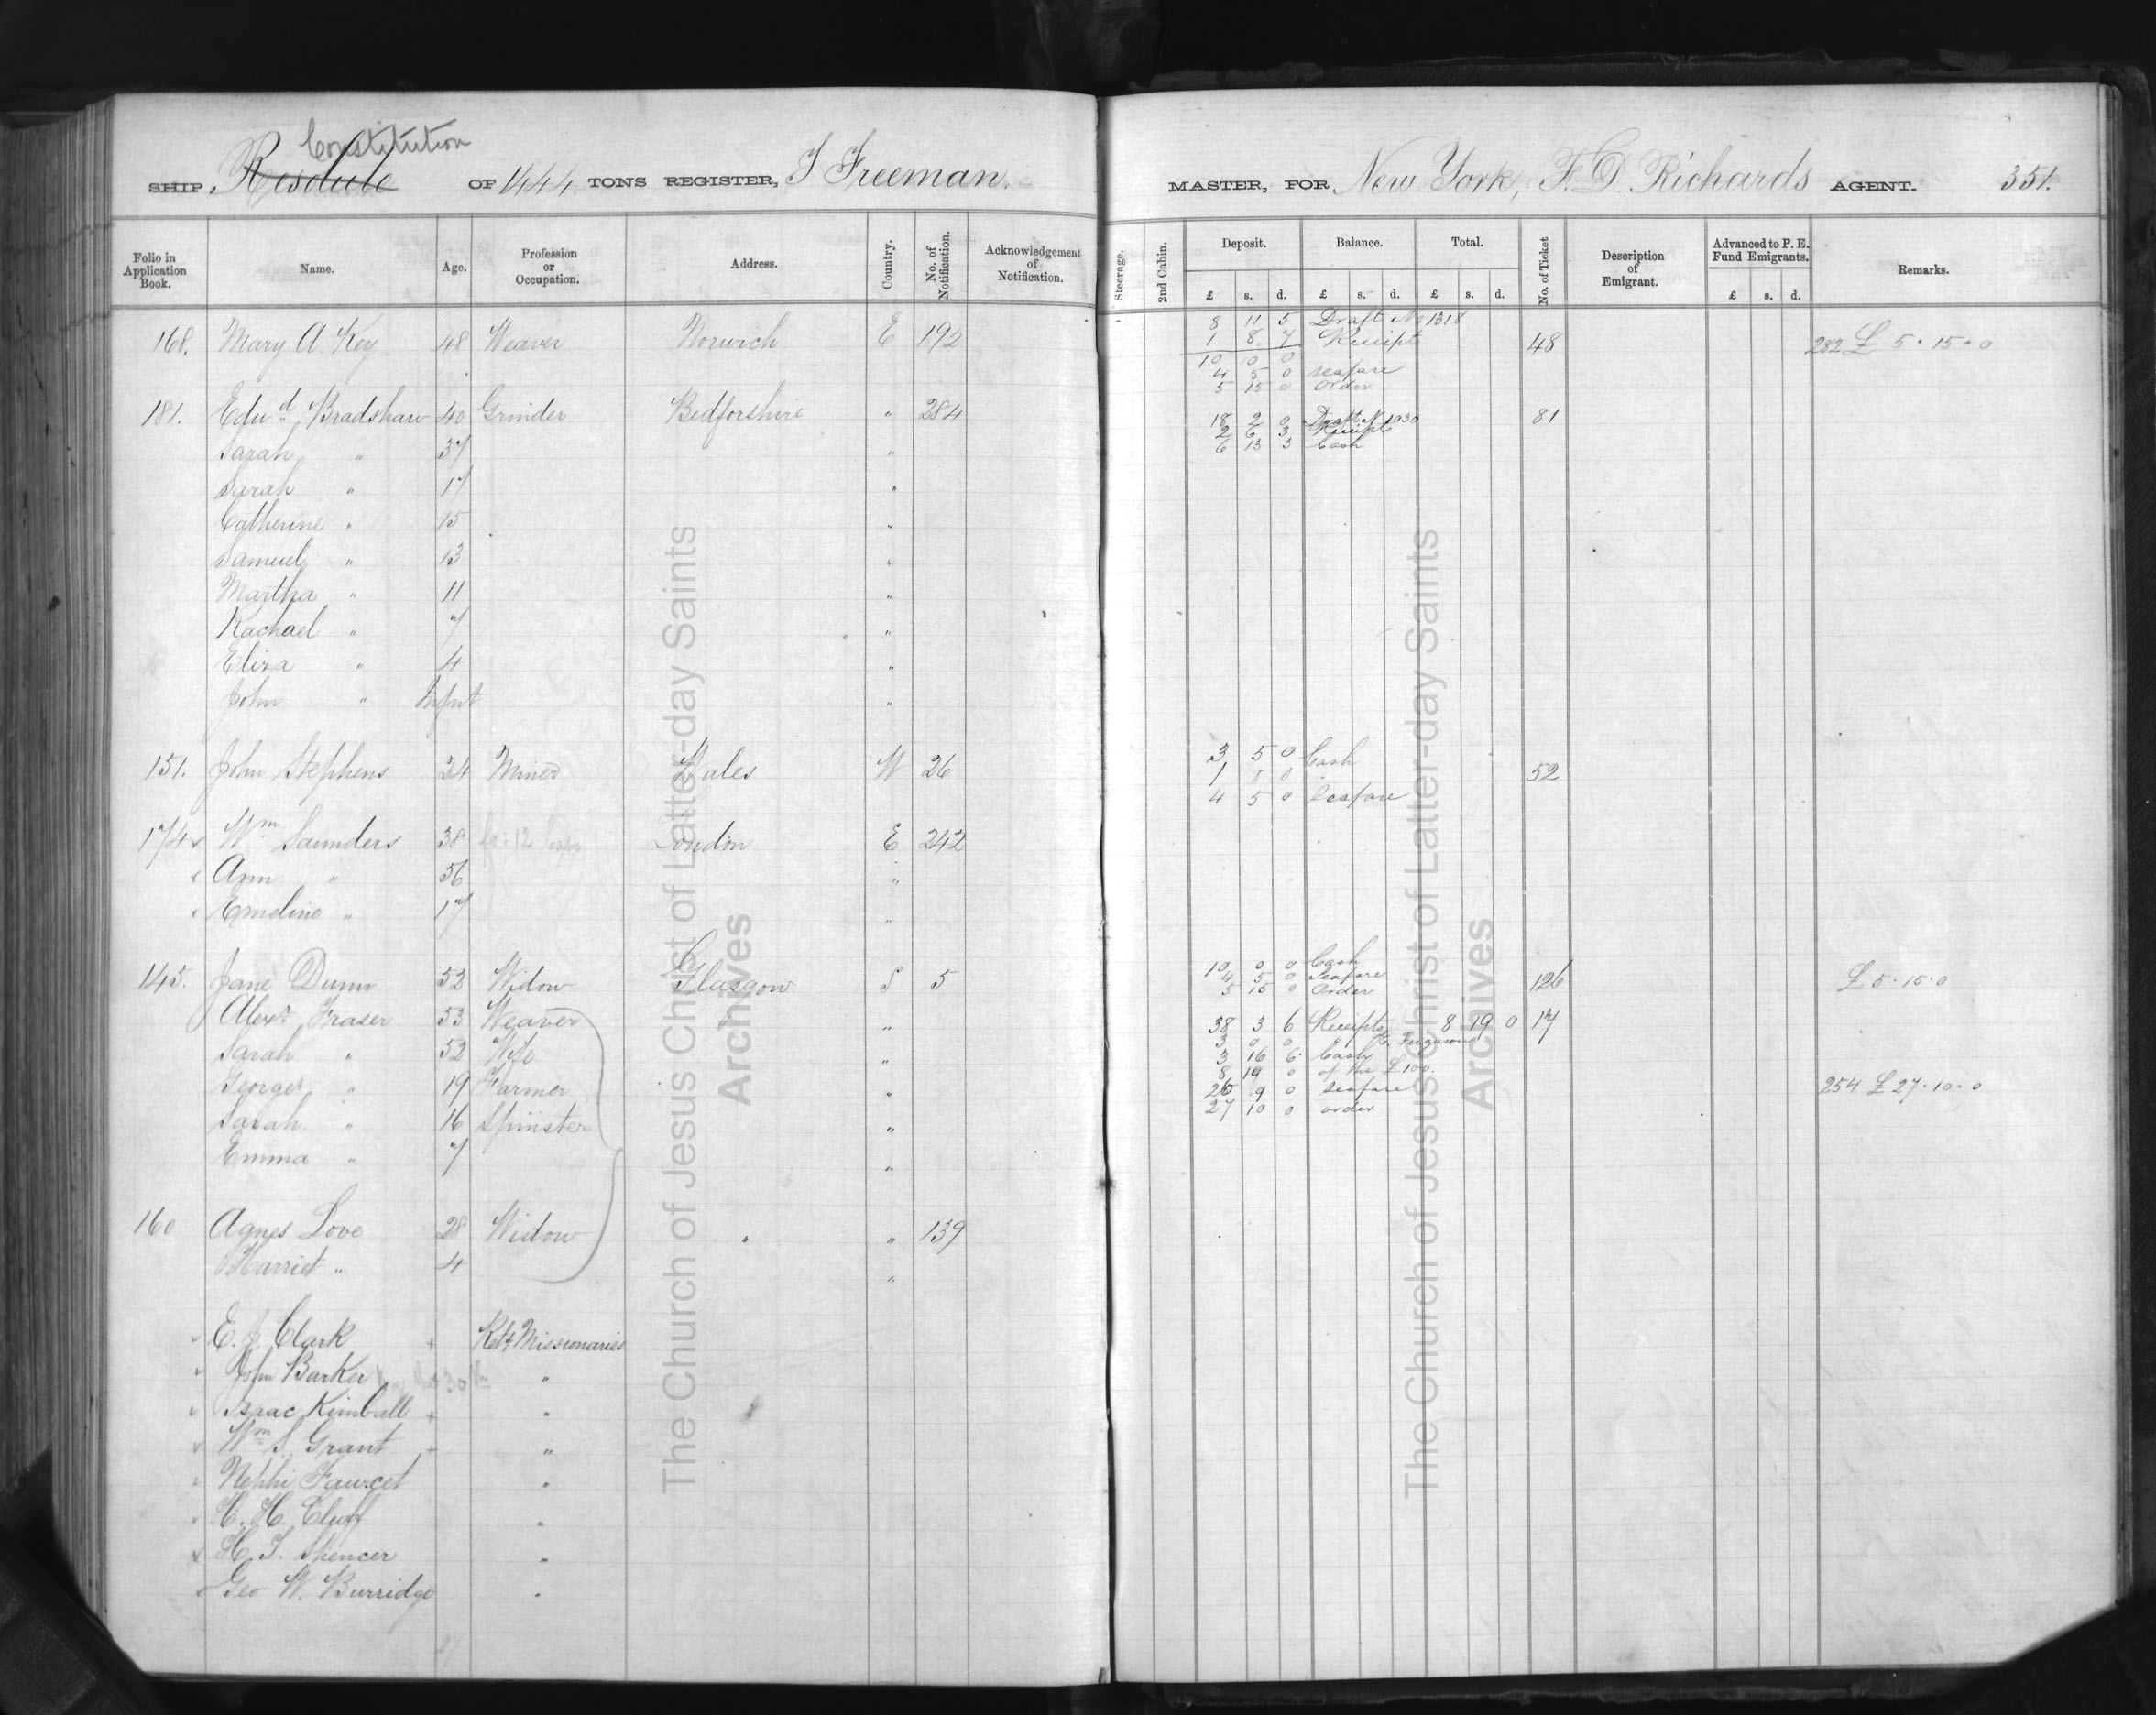 Constitution
SHIP, Resolute OF 1444 TONS REGISTER, J Freeman. MASTER, FOR New York, F. D Richards AGENT. 351.
Folio in Application Book. Name. Age. Profession or Occupation. Address. Country. No. of Notification. Acknowledgement of Notification. Steerage. 2nd Cabin. Deposit. Balance. Total. No. of Ticket Description of Emigrant. Advanced to P. E. Fund Emigrants. Remarks.
£ s. d. £ s. d. £ s. d. £ s. d.
8 11 5 Draft No 1318
168. Mary A. Key 48 Weaver Norwich E 192 1 8 7 Receipt 48 282 £ 5 . 15 . 0
10 10 0
4 5 0 seafare
5 15 0 order
181. Edwd Bradshaw 40 Grinder Bedforshire " 284 18 2 0 Draft N 1030 81
2 6 3 Receipts
Sarah " 37 " 6 13 3 Cash
Sarah " 17 "
Catherine " 15 "
Samuel " 13 "
Martha " 11 "
Rachael " 7 "
Eliza " 4 "
John " Infnt "
3 5 0 Cash
151. John Stephens 24 Miner Wales W 26 1 0 0 " 52
4 5 0 Seafare
174 Wm Saunders 38 London E 242
Ann " 56 "
Emeline " 17 "
10 0 0 Cash
145. Jane Dunn 52 Widow Glasgow S 5 4 5 0 Seafare 126 £ 5 . 15 . 0
5 15 0 Order
Alexr Fraser 53 Weaver " 38 3 6 Receipts 8 19 0 17
3 0 0 " Ferguson
Sarah " 52 Wife " 3 16 6 Cash
8 19 0 of the £100.
George " 19 Farmer " 26 9 0 seafare 254 £ 27 . 10 . 0
27 10 0 order
Sarah " 16 Spinster "
Emma " 7 "
160 Agnes Love 28 Widow " " 139
Harriet " 4 "
E. J. Clark + Ret. Missionaries
John Barker "
Isaac Kimball + "
Wm S. Grant + "
Nephi Fawcet "
H. H. Cluff "
H. T. Spencer "
Geo W. Burridge "
The Church of Jesus Christ of Latter-day Saints
Archives
The Church of Jesus Christ of Latter-day Saints
Archives